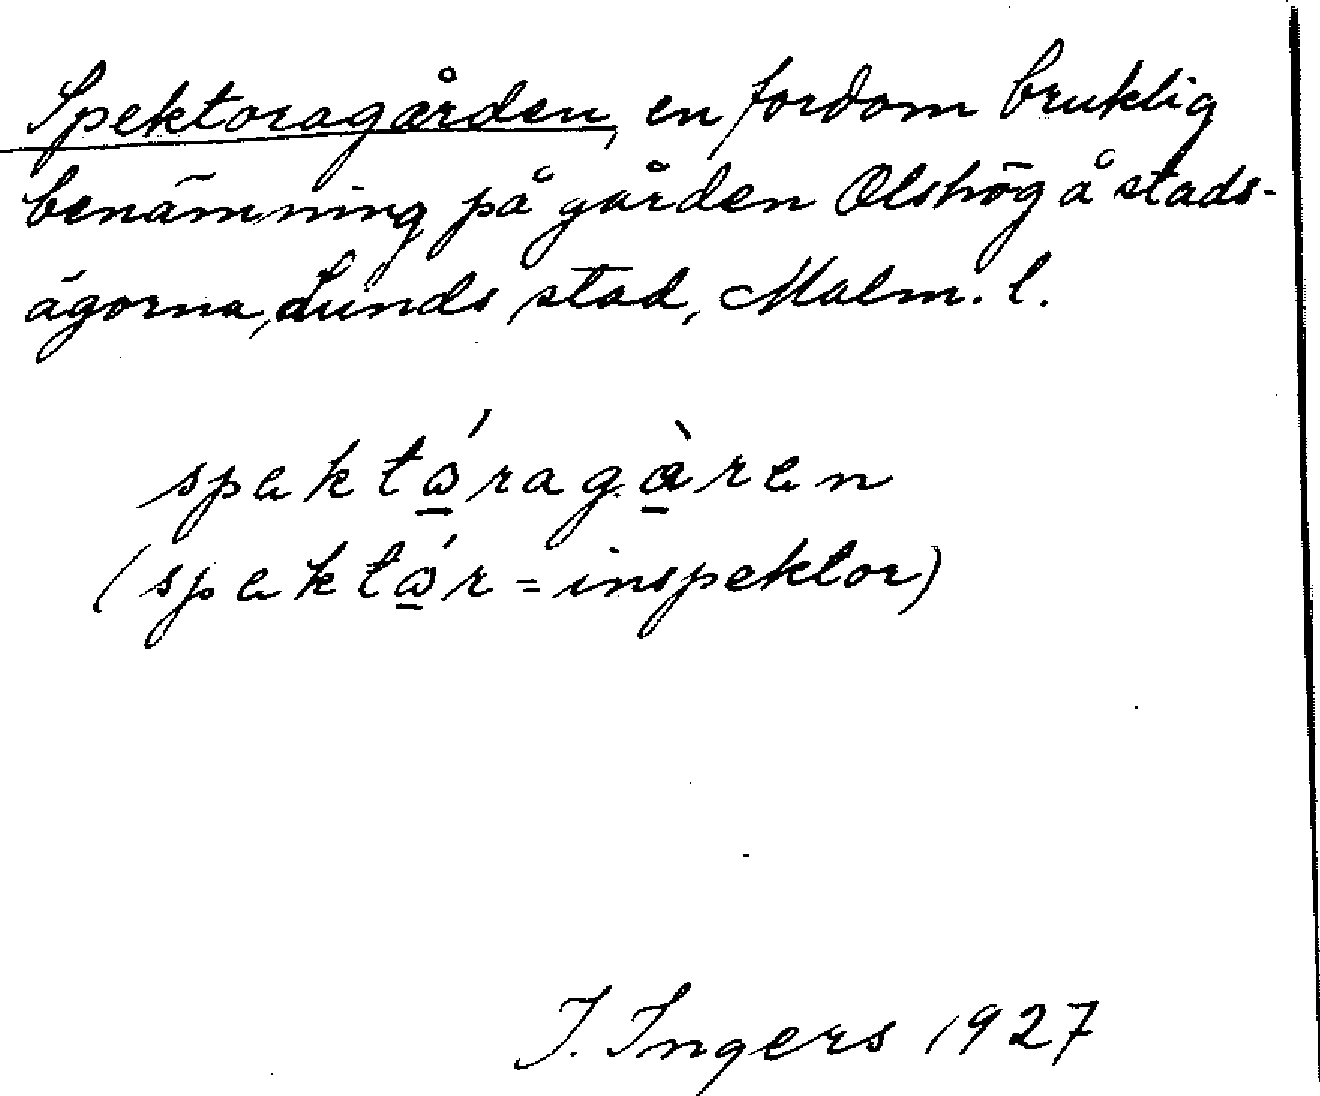 Spektoragården, en fordom bruklig
benämning på gården Olshög å stads-
ägorna, Lunds stad, Malm. l.
spektώ̲ragà̲ren
(spektώ̲r = inspektor)
I. Ingers 1927